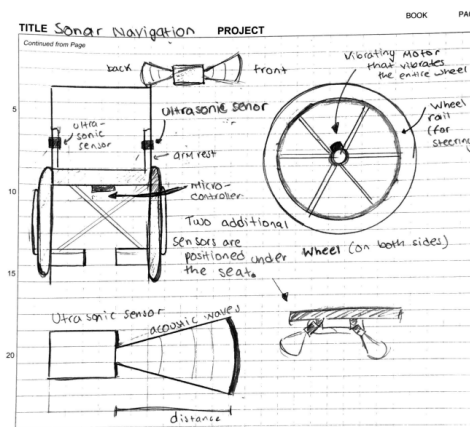 BOOK PA
TITLE Sonar Navigation PROJECT
Continued from Page
back
front
Vibrating Motor
that vibrates
the entire wheel
5
ultra-
sonic
sensor
Ultrasonic senor
Wheel
rail
(for
steering
armrest
10
micro-
controller
Two additional
sensors are
positioned under
the seat.
Wheel (on both sides)
15
Utrasonic sensor
acoustic waves
20
distance
23